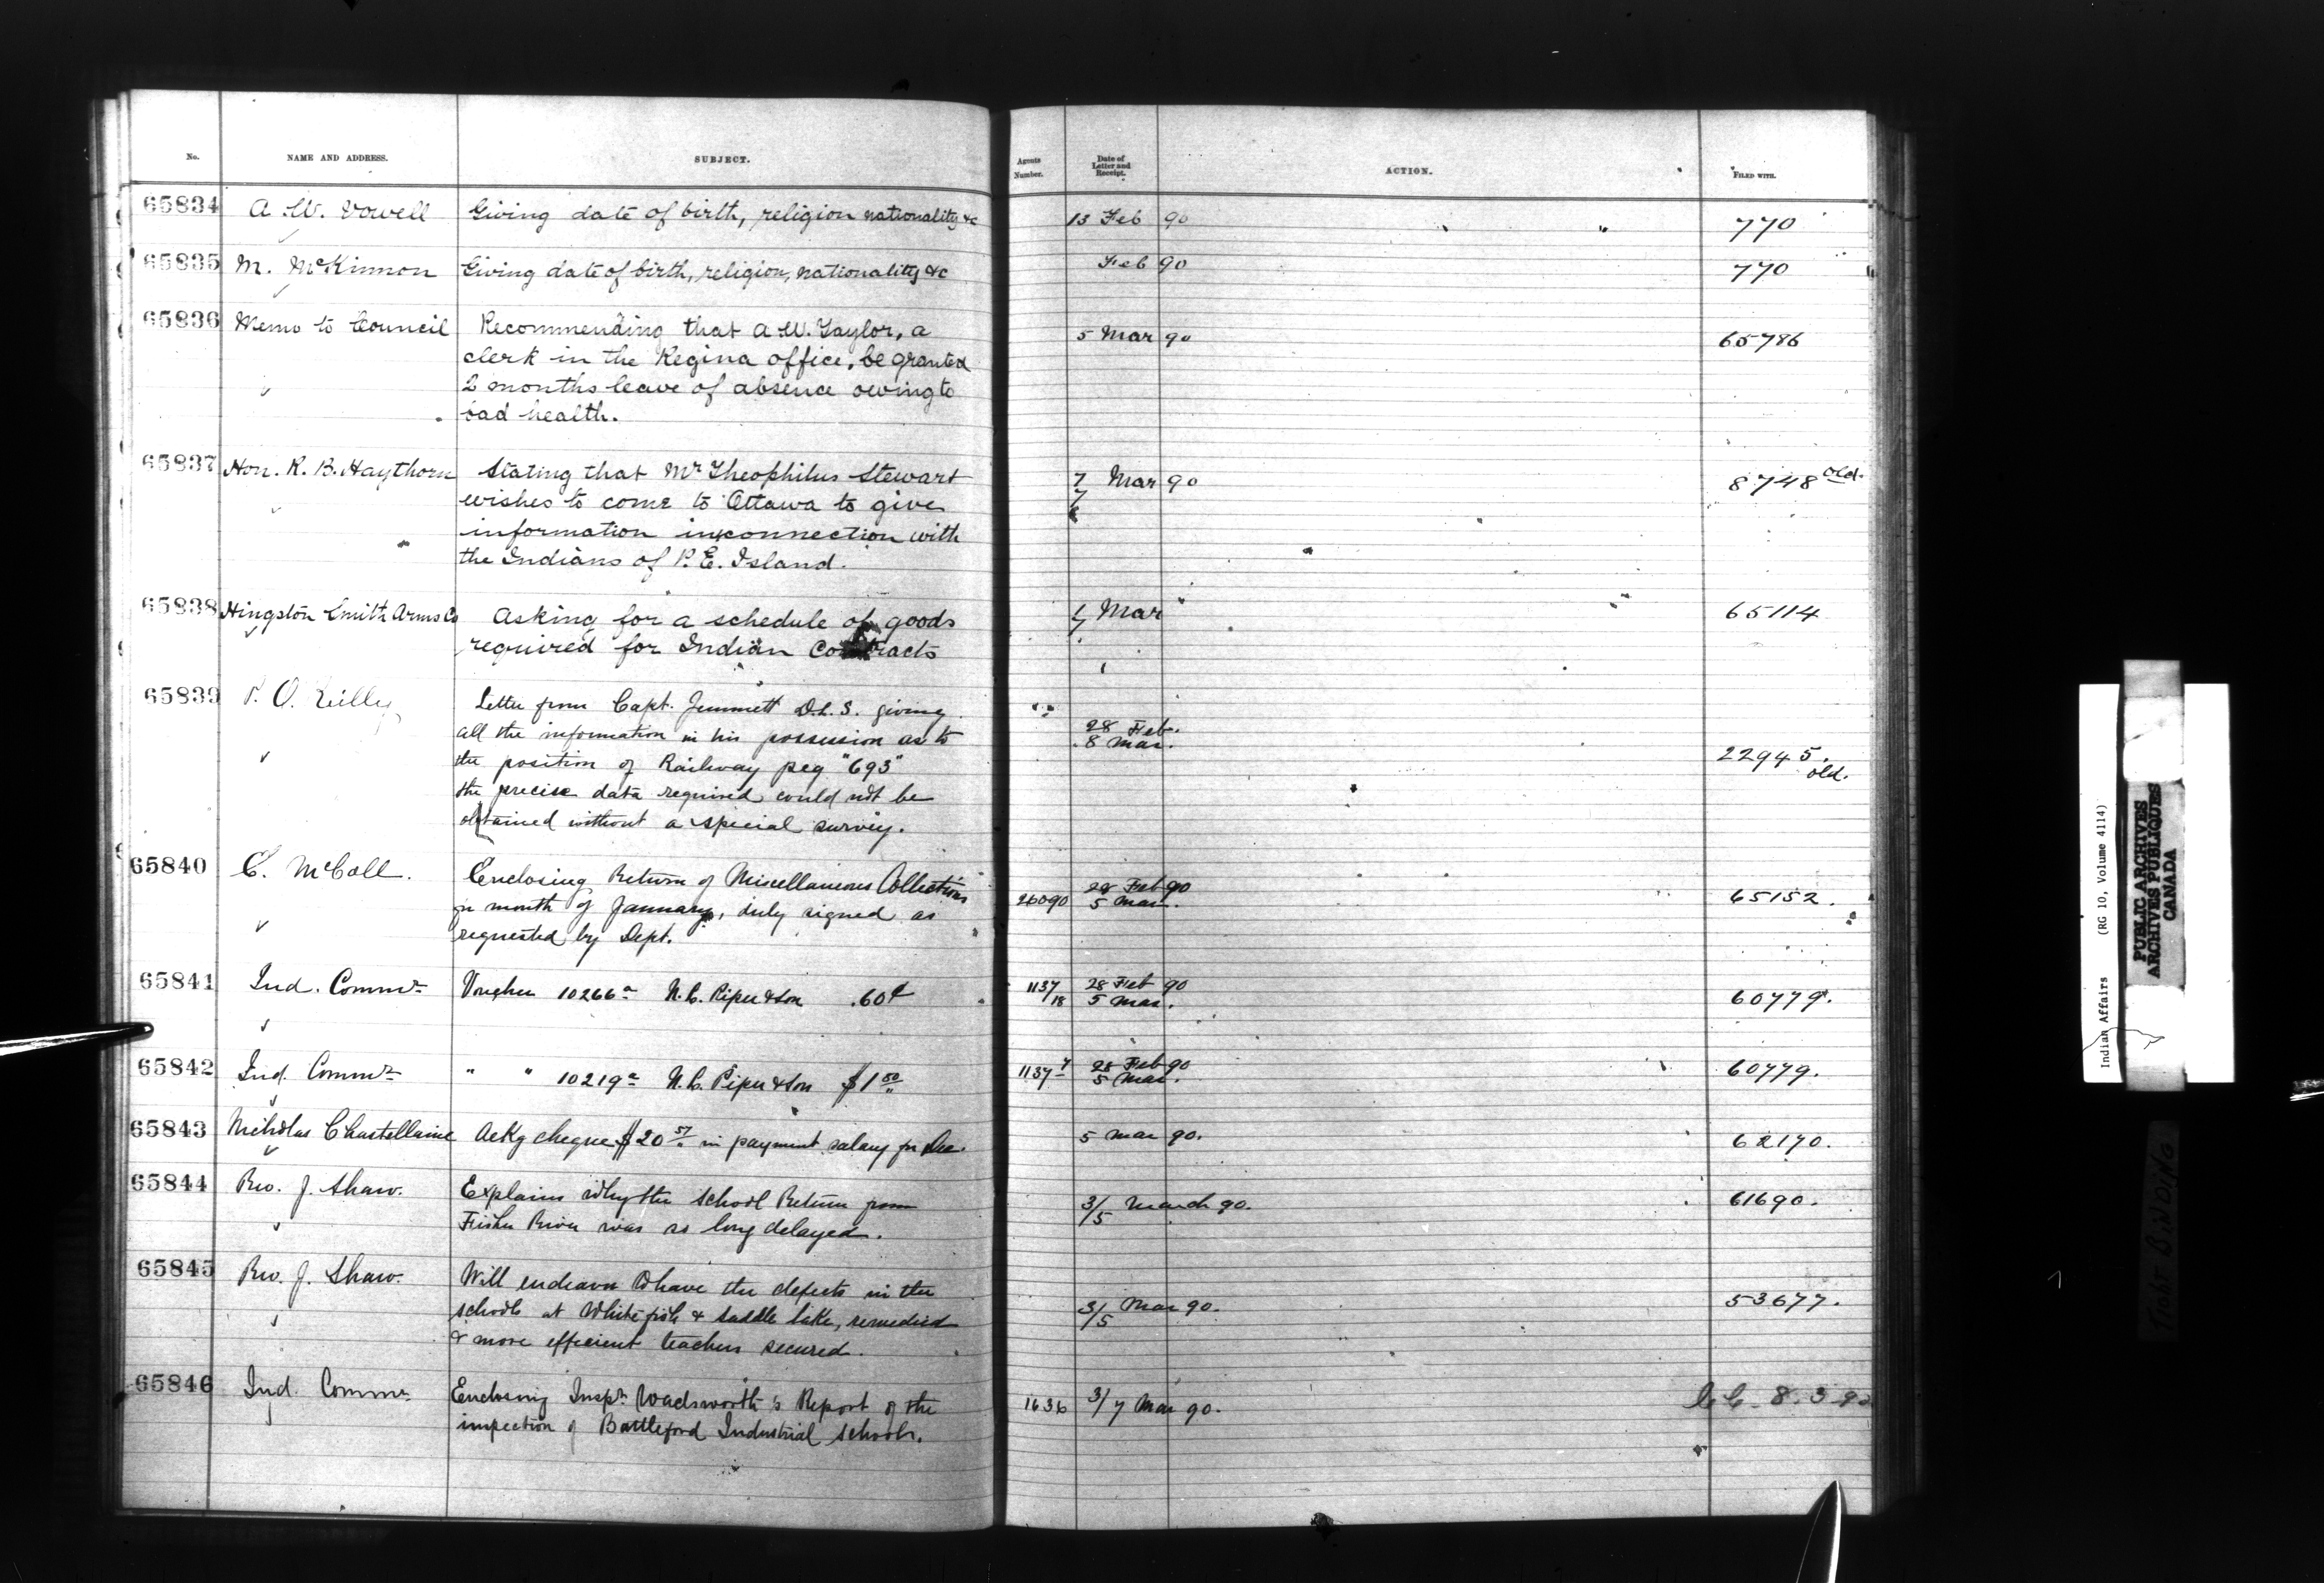 No. NAME AND ADDRESS. SUBJECT. Agents Number. Date of Letter and Receipt. ACTION. FILED WITH.
65834 A. W. Vowell Giving date of birth, religion nationality &c 13 Feb 90 770
65835 M. McKinnon Giving date of birth, religion, nationality &c Feb 90 770
65836 Memo to Council Recommending that A. W. Taylor, a 5 Mar 90 65786
clerk in the Regina office, be granted
2 months leave of absence owing to
bad health.
65837 Hon. R. B. Haythorn Stating that Mr Theophilus Stewart 7/7 Mar 90 8748 old.
wishes to come to Ottawa to give
information in connection with
the Indians of P. E. Island.
65838 Hingston Smith Arms Co Asking for a schedule of goods Mar 65114
required for Indian Contracts
65839 P. O. Reilly Letter from Capt. Jemmett D.L.S. giving
all the information in his possession as to 28 Feb. 8 Mar.
the position of Railway peg "693" 22945. old.
the precise data required could not be
obtained without a special survey.
65840 E. McColl. Enclosing Return of Miscellaneous Collections 28 Feb 90
for month of January, duly signed as 26090 5 Mar. 65152.
requested by Dept.
65841 Ind. Commr Voucher 10266a N. C. Piper & Son .60¢ 1137/18 28 Feb 90 5 Mar. 60779.
65842 Ind. Commr " " 10219a N. C. Piper & Son $1 50 1137 28 Feb 90 5 Mar. 60779.
65843 Nicholas Chastellaine Ackg cheque $20 57 in payment salary for Dec. 5 Mar 90. 62170.
65844 Rev. J. Shaw. Explains why the School Return from 3/5 March 90. 61690.
Fisher River was so long delayed.
65845 Rev. J. Shaw. Will endeavor to have the defects in the
schools at Whitefish & Saddle Lake, remedied 3/5 Mar 90. 53677.
& more efficient teachers secured.
65846 Ind. Commr Enclosing Inspr Wadsworth's Report of the 1636 3/7 Mar 90. 8.3.90
inspection of Battleford Industrial Schools.
Indian Affairs (RG 10, Volume 4114)
PUBLIC ARCHIVES
ARCHIVES PUBLIQUES
CANADA
TIGHT BINDING